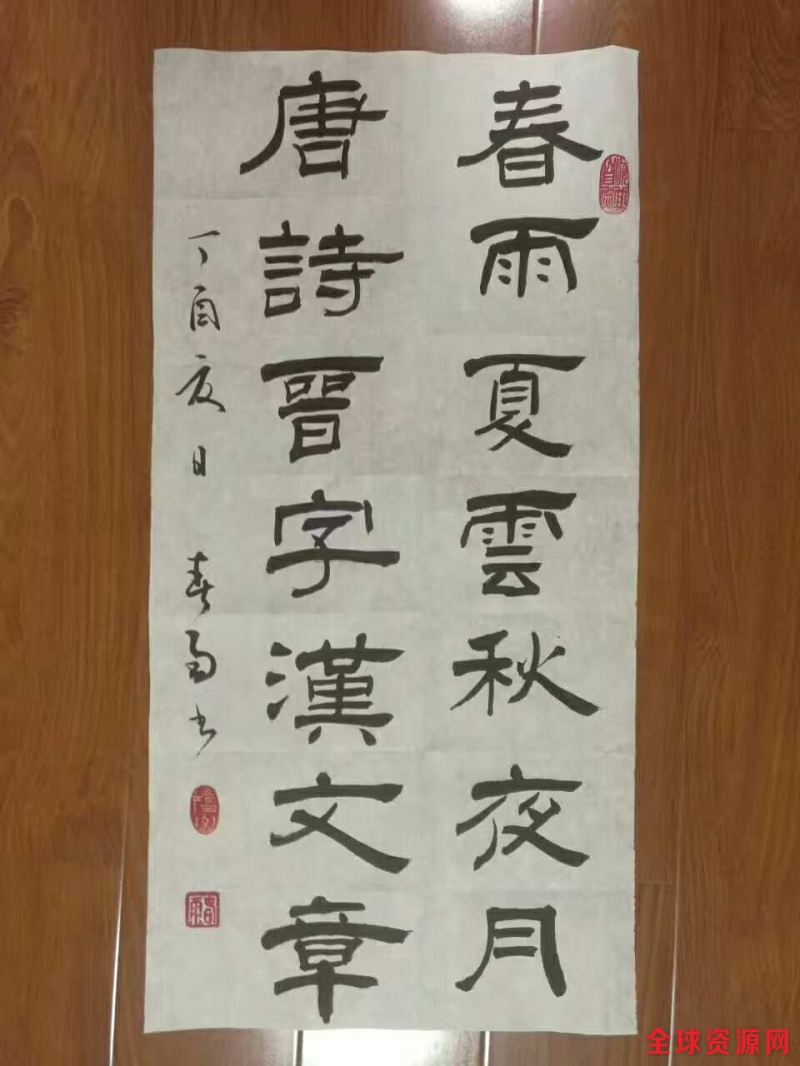 春雨夏雲秋夜月
唐詩晉字漢文章
丁酉夏日 春雨书
全球资源网